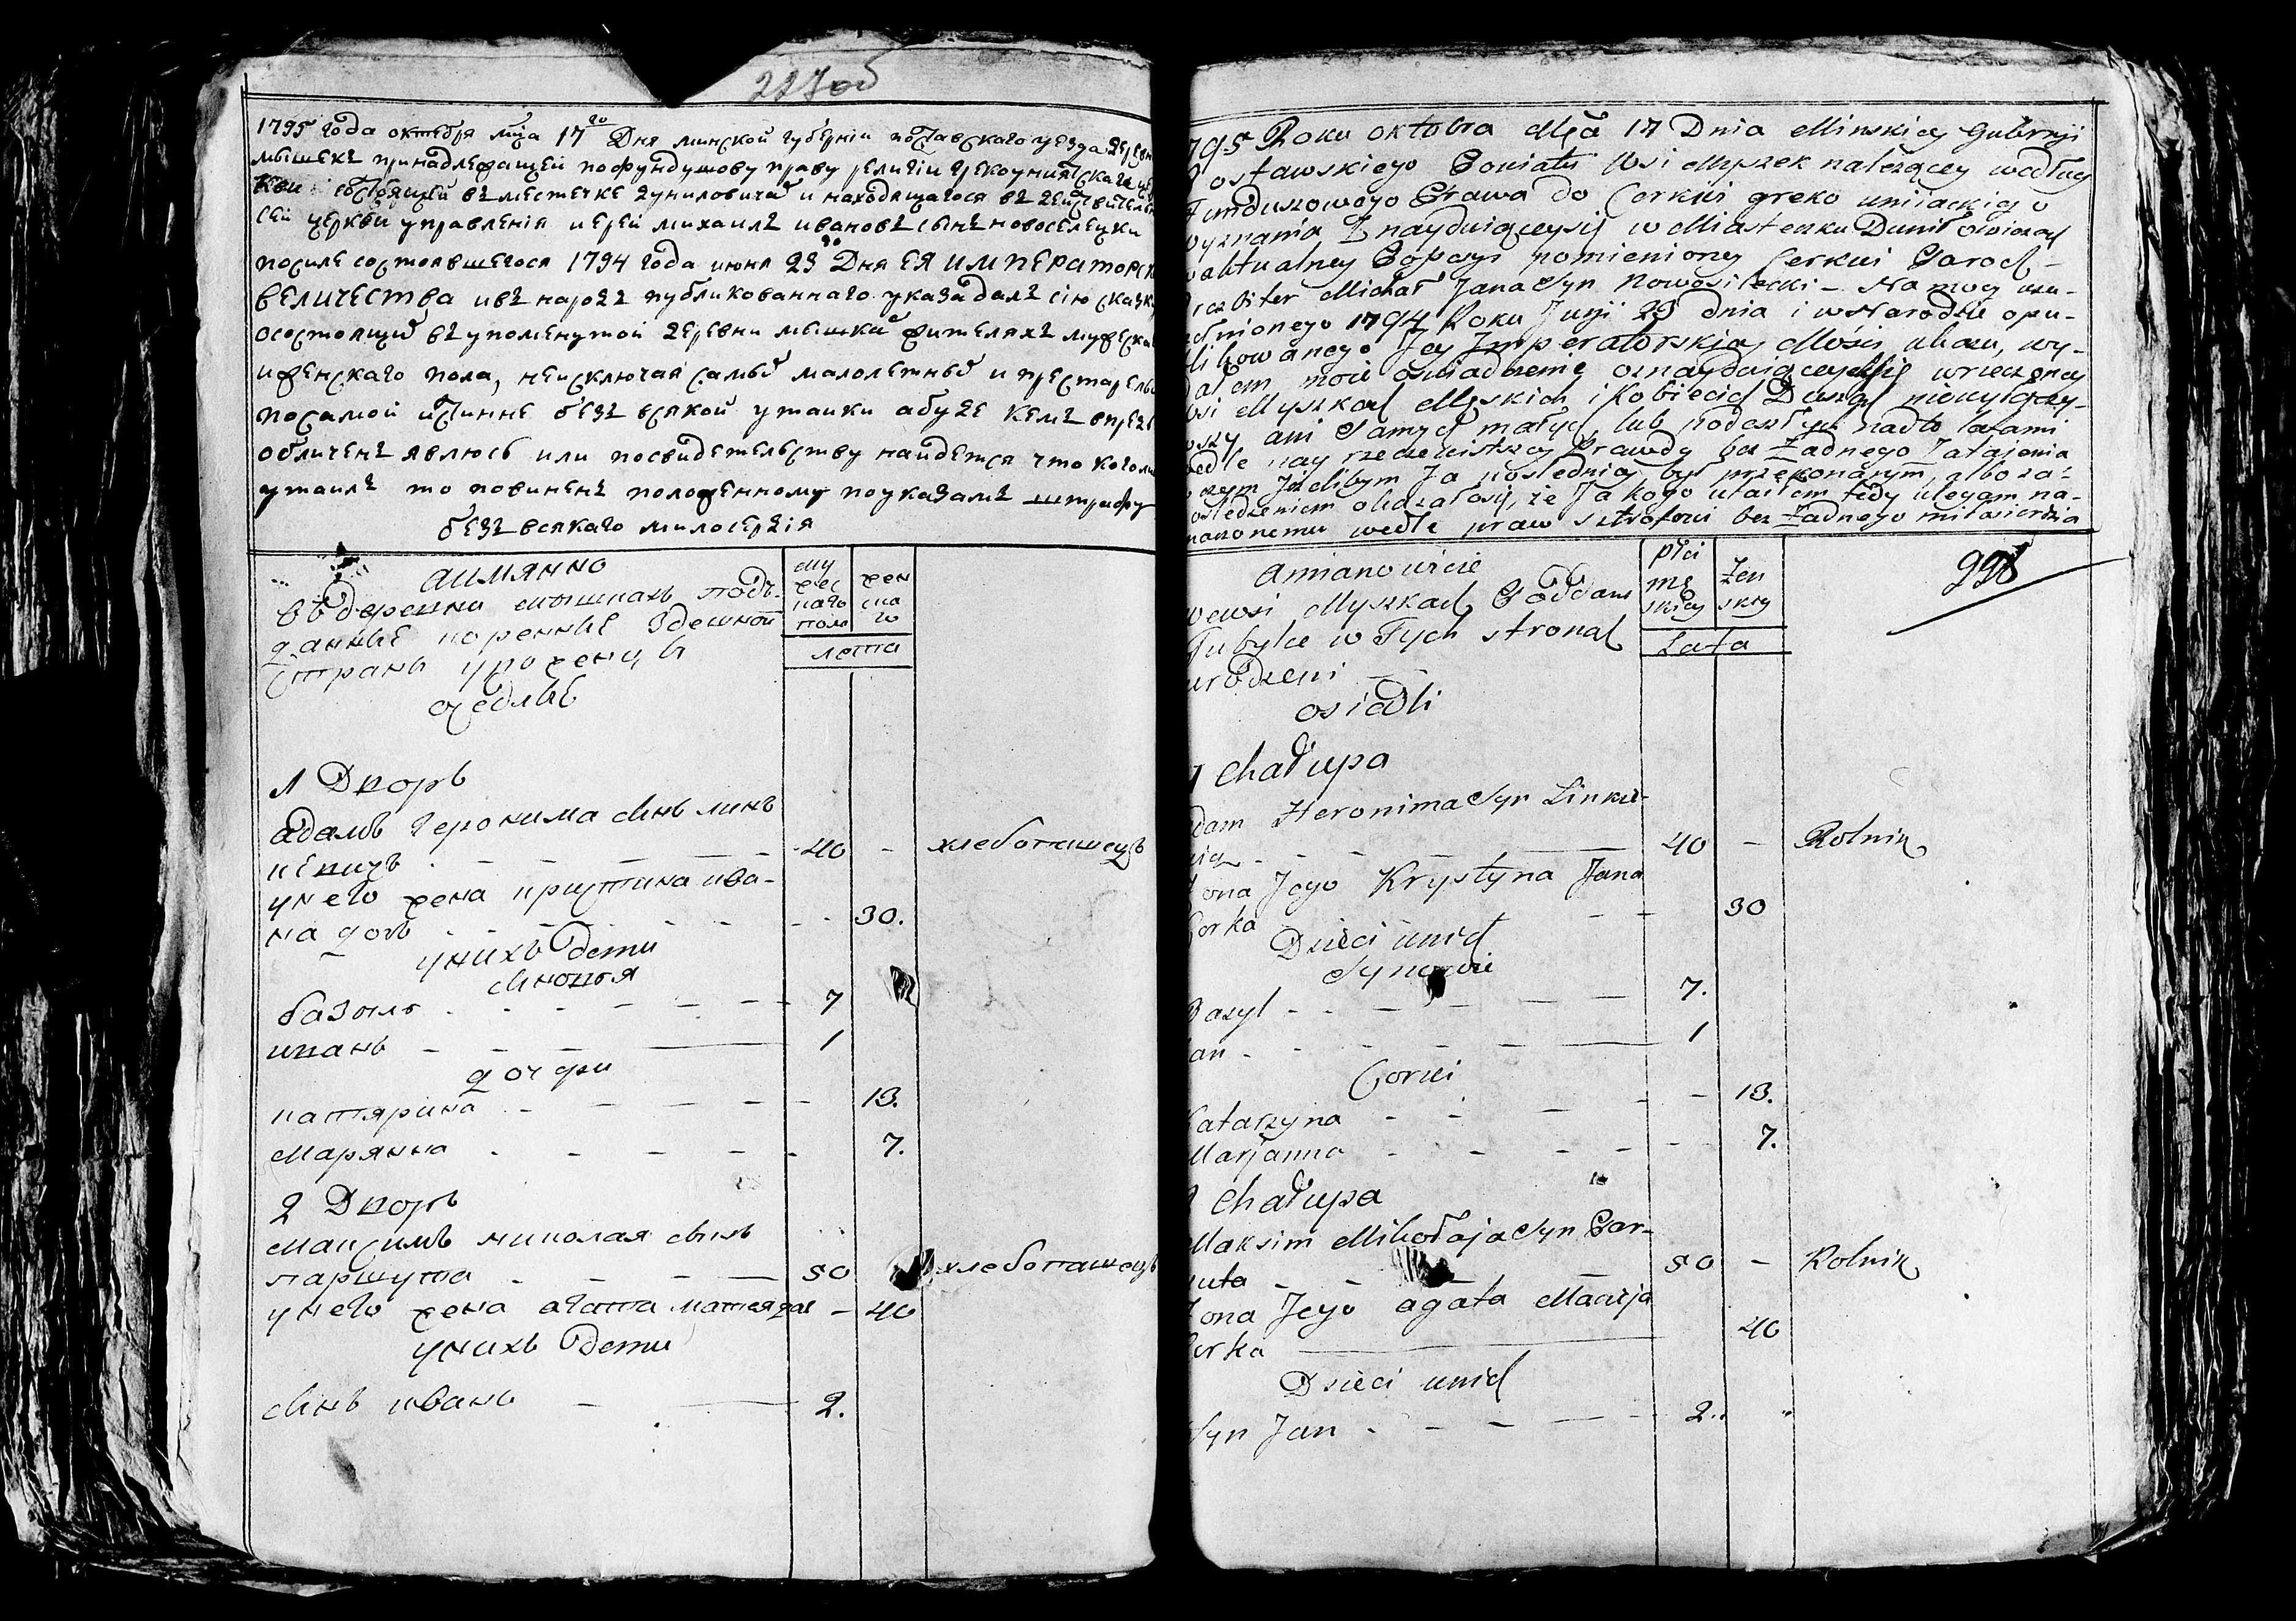 227об
1795 года октебря мца 17го Дня минской губерніи поставского уезда дерев
мышекъ принадлежащей пофундушову праву религіи грекоуниатскаго
состоящей въ местечке дуниловичах и находящагося въ
сей церкви управленія иерей михаилъ ивановъ сынъ новоселецки
посиле состоявшегося 1794 года июня 23го Дня ЕЯ ИМПЕРАТОРС
ВЕЛИЧЕСТВА ивъ народъ публикованнаго указа далъ сію сказк
осостоящих въ упоменутой деревни мышках жителяхъ мужеска
иженскаго пола, неисключая самых малолетных и престарелы
посамой истинне безъ всякой утайки а буде кемъ впредь
обличенъ явлюсь или посвидетельству найдется что коголи
утаилъ то повиненъ положенному поуказамъ штрафу
безъ всякаго милосердія
аимянно
въ деревни мышкахъ под-
данные коренные здешной
страны уроженцы
оседлые
му
жес
каго
пола
жен
ска
го
лета
1 Дворъ
адамъ геронима сынъ линь
кевичъ 40 - хлебопашецъ
у него жена криштина ива-
на дочь 30.
у нихъ дети
сыновья
базыль 7
иванъ 1
дочери
катярина 13.
марянна 7.
2 Дворъ
максимъ миколая сынъ
паршута 50 хлебопашецъ
у него жена агата матея дог - 40
у нихъ дети
сынъ иванъ 2.
795 Roku oktobra Mca 17 Dnia Minskiey Gubernji
ostawskiego Powiatu Wsi Myszek należącey według
Funduszowego Prawa do Cerkwi greko uniackiego
wyznania Znayduiąceysię w Miasteczku Duniłowiczach
aktualney Popsyi pomienioney Cerkwi Paroch-
rezbiter Michał Jana Syn Nowosielecki - Na mocy
1794 Roku Junji 23 dnia i w Narodzie opu-
blikowanego Jey Imperatorskiey Mości ukazu, wy-
dałem moie oświadczenie wrzeczoney
wsi Myszkach Męskich i Kobiecich Dusząch niewyłączy-
wszy ani Samych małych lub podeszłych nadto latami
wedle nay rzeczewistszey Prawdy bez Żadnego Zatajenia
Jeżelibym Ja poslednicy był przekonanym, albo za-
sledzeniem okazałosię, że Ja kogo utaiłem tedy ulegam na-
znaczonemu wedle praw sztrofowi bez Żadnego miłosierdzia
998
amianowicie
wewsi Myszkach Poddani
Tubylce w Tych stronach
urodzeni
osiedli
płci
mę
skiey
żen
skiey
Lata
1 Chałupa
dam Heronima Syn Linkie-
wicz 40 - Rolnik
ona Jego Krystyna Jana
Corka 30
Dzieci unich
Synowie
Bazyl 7.
an 1
Corki
Katarzyna 13.
Marjanna 7.
2 Chałupa
Maksim Mikołaja Syn Par-
uta 50 - Rolnik
ona Jego agata Macieja
Corka 40
Dzieci unich
Syn Jan 2.